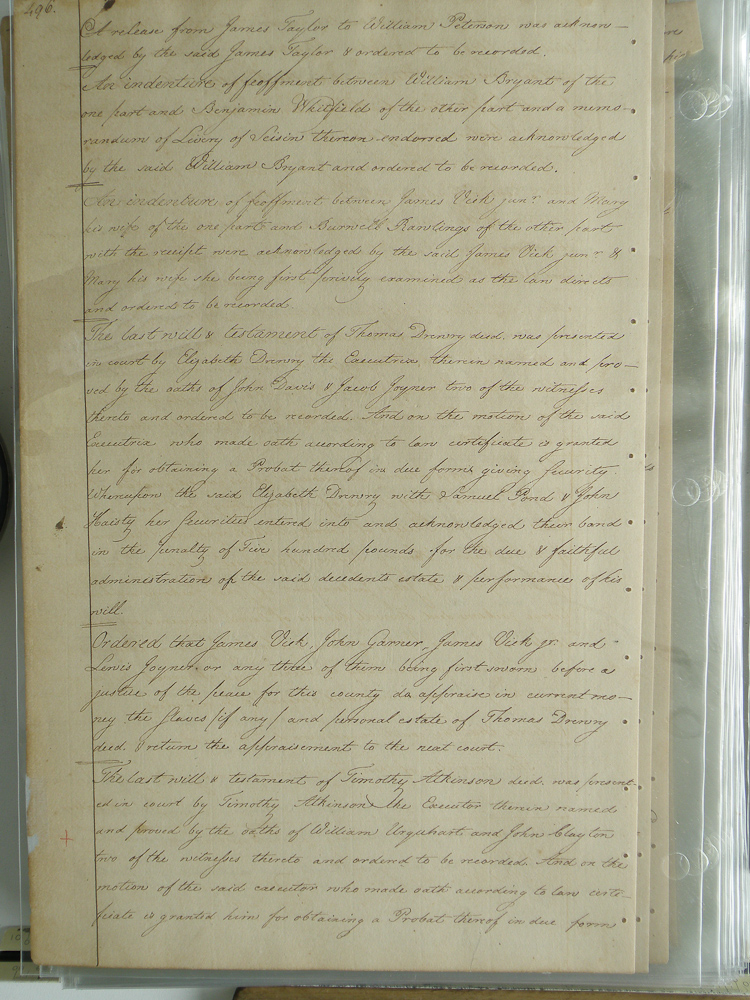 496.
A release from James Taylor to William Peterson was acknow-
ledged by the said James Taylor & ordered to be recorded.
An indenture of feoffment between William Bryant of the
one part and Benjamin Whitfield of the other part and a memo-
randum of Livery of Seisin thereon endorsed were acknowledged
by the said William Bryant and ordered to be recorded.
An indenture of feoffment between James Vick junr. and Mary
his wife of the one part and Burwell Rawlings of the other part
with the receipt were acknowledged by the said James Vick junr. &
Mary his wife she being first privily examined as the law directs
and ordered to be recorded
The last will & testament of Thomas Drewry deed. was presented
in court by Elizabeth Drewry the Executrix therein named and pro-
ved by the oaths of John Davis & Jacob Joyner two of the witnesses
thereto and ordered to be recorded. And on the motion of the said
Executrix who made oath according to law certificate is granted
her for obtaining a Probat thereof in due form giving security.
Whereupon the said Elizabeth Drewry with Samuel Pond & John
Haisty her securities entered into and acknowledged their bond
in the penalty of Five hundred pounds for the due & faithful
administration of the said decedents estate & performance of his
will.
Ordered that James Vick, John Garner, James Vick jr. and
Lewis Joyner or any three of them being first sworn before a
justice of the peace for this county do appraise in current mo-
ney the slaves /if any/ and personal estate of Thomas Drewry
deed. & return the appraisement to the next court.
The last will & testament of Timothy Atkinson deed. was present-
ed in court by Timothy Atkinson the Executor therein named
and proved by the oaths of William Urquhart and John Clayton
two of the witnesses thereto and ordered to be recorded. And on the
motion of the said executor who made oath according to law certi-
ficate is granted him for obtaining a Probat thereof in due form